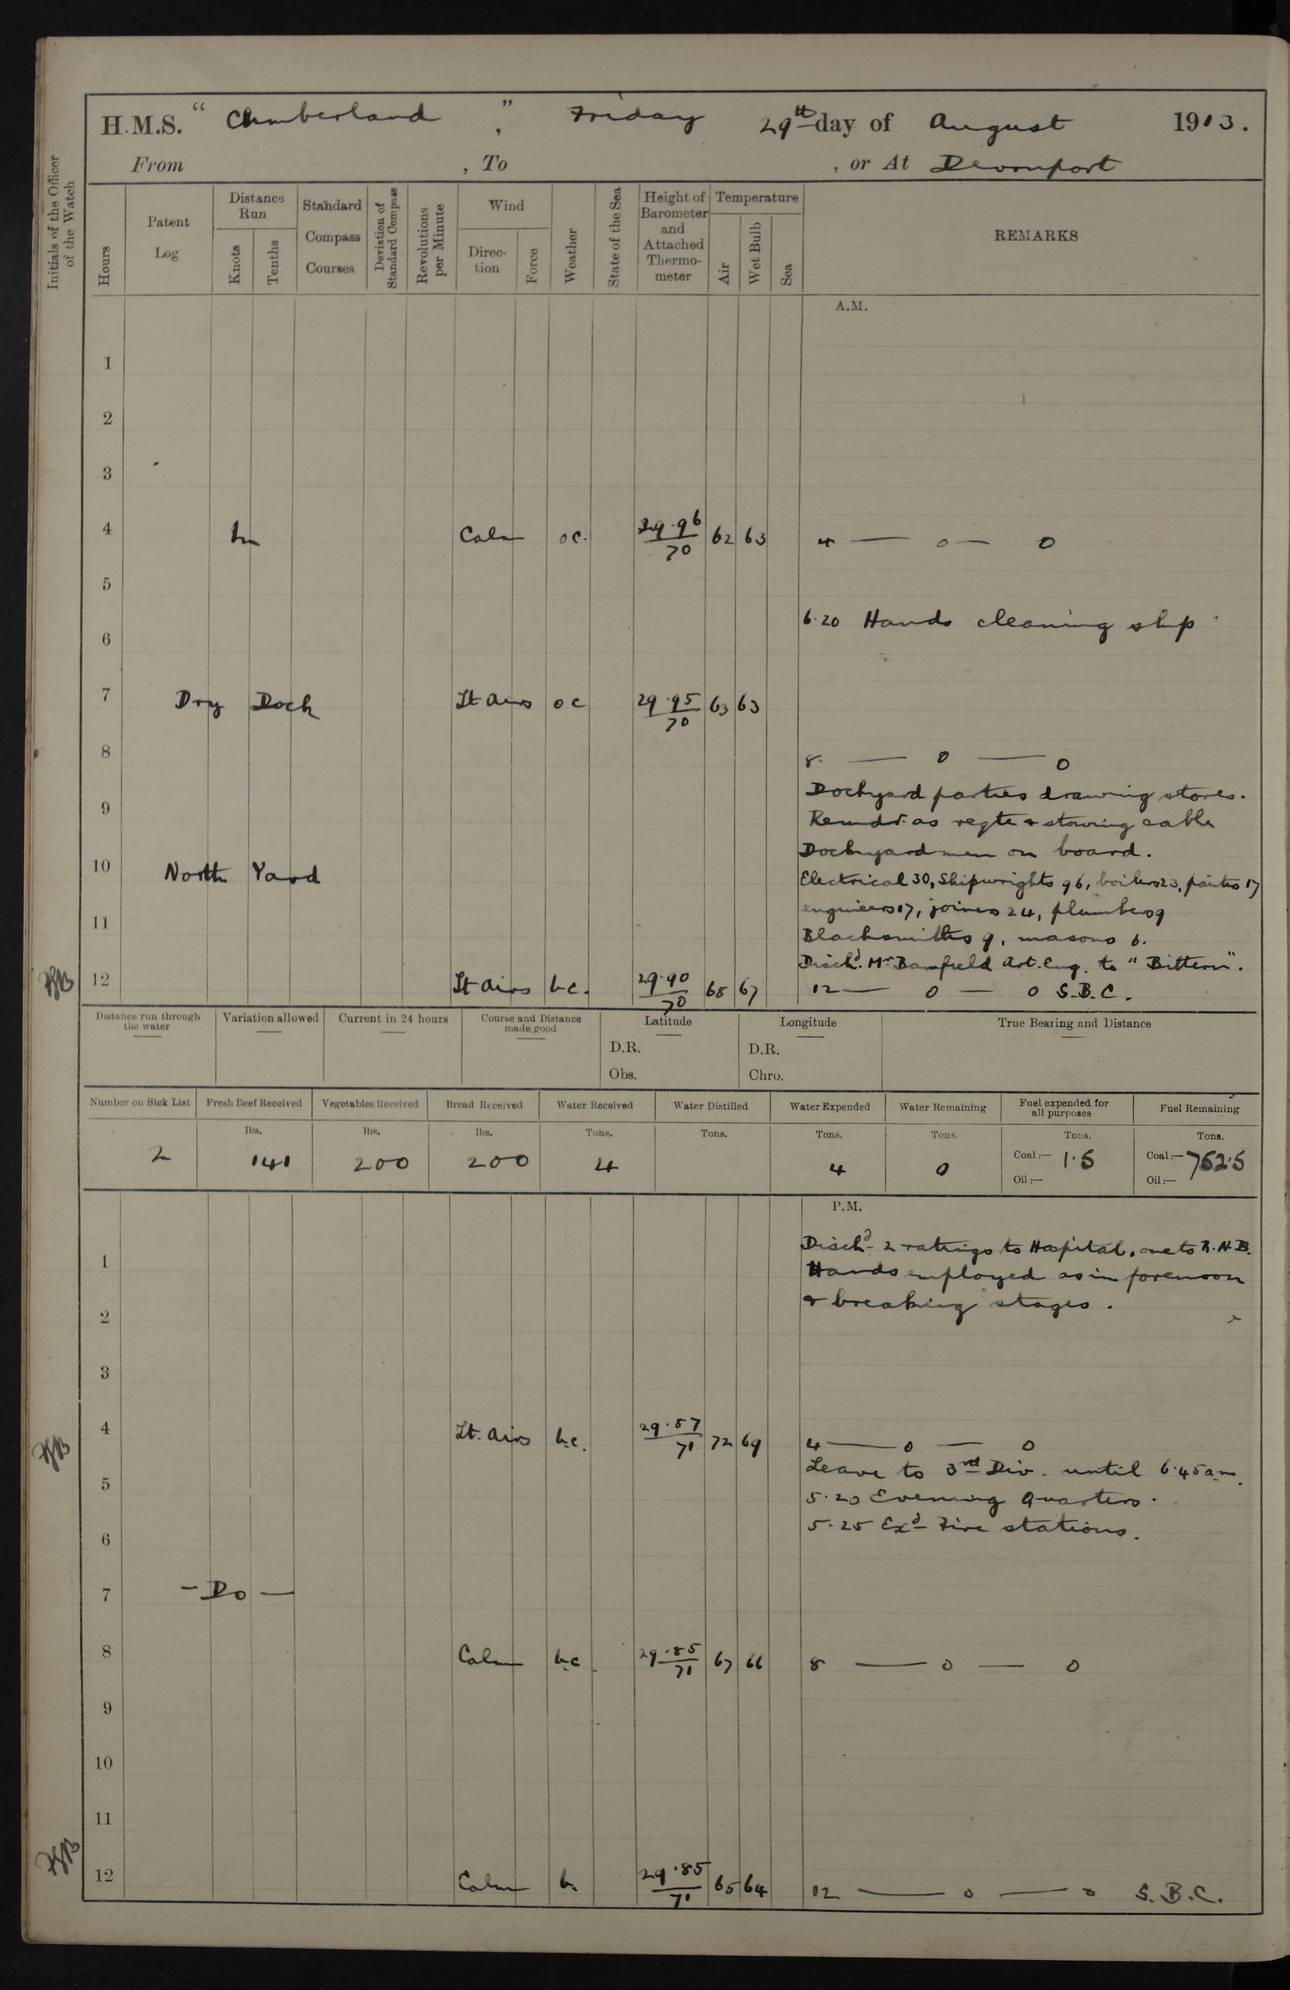 H.M.S. " Cumberland ", Friday 29th day of August 1913.
From , To , or At Devonport
Initials of the Officer of the Watch
Hours
Patent Log
Distance Run
Knots
Tenths
Standard Compass Courses
Deviation of Standard Compass
Revolutions per Minute
Wind
Direction
Force
Weather
State of the Sea
Height of Barometer and Attached Thermometer
Temperature
Air
Wet Bulb
Sea
REMARKS
A.M.
1
2
3
4 In Calm oc. 29.96/70 62 63 4 — 0 — 0
5
6.20 Hands cleaning ship
6
7 Dry Dock Lt airs oc 29.95/70 63 63
8 8. — 0 — 0
Dockyard parties drawing stores.
9 Remdr. as reqte & stowing cable
Dockyardmen on board.
10 North Yard
Electrical 30, Shipwrights 96, boilers 23, paints 17
engineers 17, joiners 24, plumbers 9
11
Blacksmiths 9, masons 6.
Disch'd. Mr Bamfield Art. Eng. to "Bittern".
12 Lt airs b.c. 29.90/70 68 67 12 — 0 — 0 S.B.C.
Distance run through the water
Variation allowed
Current in 24 hours
Course and Distance made good
Latitude
D.R.
Obs.
Longitude
D.R.
Chro.
True Bearing and Distance
Number on Sick List
Fresh Beef Received
Vegetables Received
Bread Received
Water Received
Water Distilled
Water Expended
Water Remaining
Fuel expended for all purposes
Fuel Remaining
lbs. lbs. lbs. Tons. Tons. Tons. Tons. Tons. Tons.
2 141 200 200 4 4 0 Coal:— 1.5 Coal:— 752.5
Oil:— Oil:—
P.M.
Disch'd 2 ratings to Hospital, one to R.N.B.
1 Hands employed as in forenoon
& breaking stages.
2
3
4 Lt. airs b.c. 29.87/71 72 69 4 — 0 — 0
Leave to 3rd Div. until 6.45 am.
5
5.20 Evening Quarters.
5.25 Ex'd Fire stations.
6
7 - Do -
8 Calm b.c 29.85/71 67 66 8 — 0 — 0
9
10
11
12 Calm b. 29.85/71 65 64 12 — 0 — 0 S.B.C.